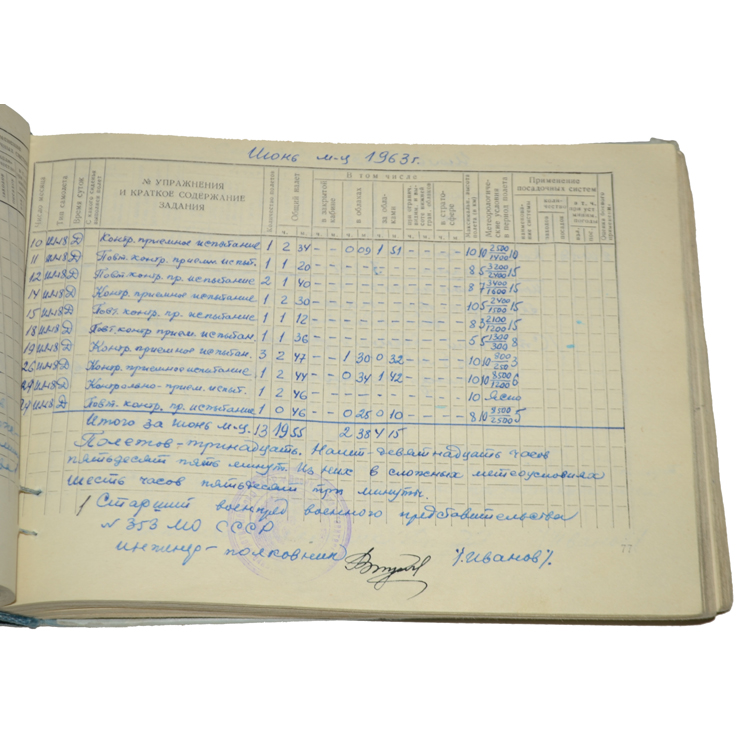 Июнь м-ц 1963г.
Число месяца
Тип самолета
Время суток
№ УПРАЖНЕНИЯ
И КРАТКОЕ СОДЕРЖАНИЕ
ЗАДАНИЯ
Количество полетов
Общий налет
В том числе
в закрытой
кабине
в облаках
за обла-
ками
в страто-
сфере
Метеорологиче-
ские условия
в период полета
Применение
посадочных систем
10 Ил-18 Д Контр. приемное испытание 1 2 34 – – 0 09 1 51 – – – – 10 10 2500/1400 10
11 Ил-18 Д Повт. контр. приемн. испыт. 1 1 20 – – – – – – – – 8 5 3200 15
12 Ил-18 Д Повт. контр. приемн. испытание 2 1 40 – – – – – – – – 8 7 3400/1600 15
14 Ил-18 Д Контр. приемное испытание 1 2 30 – – – – – – – – 10 5 2400/1500 15
15 Ил-18 Д Повт. контр. пр. испытание 1 1 12 – – – – – – – – 8 3 2100/1200 15
18 Ил-18 Д Повт. контр. прием. испытан. 1 1 36 – – – – – – – – 5 5 1300/300 8
19 Ил-18 Д Контр. приемное испытан. 3 2 47 – – 1 30 0 32 – – – – 10 10 800/250 3
26 Ил-18 Д Контр. приемное испытание 1 2 44 – – 0 34 1 42 – – – – 10 10 8500/1200 6
29 Ил-18 Д Контрольно-прием. испыт. 1 2 46 – – – – – – – – 10 Ясно
29 Ил-18 Д Повт. контр. пр. испытание 1 0 46 – – 0 25 0 10 – – – – 8 10 8500/2500 5
Итого за июнь м-ц. 13 19 55 2 38 4 15
Полетов – тринадцать. Налет – девятнадцать часов
пятьдесят пять минут. Из них в сложных метеоусловиях
шесть часов пятьдесят три минуты.
Старший военпред военного представительства
№ 353 МО СССР
инженер – полковник /Иванов/.
77